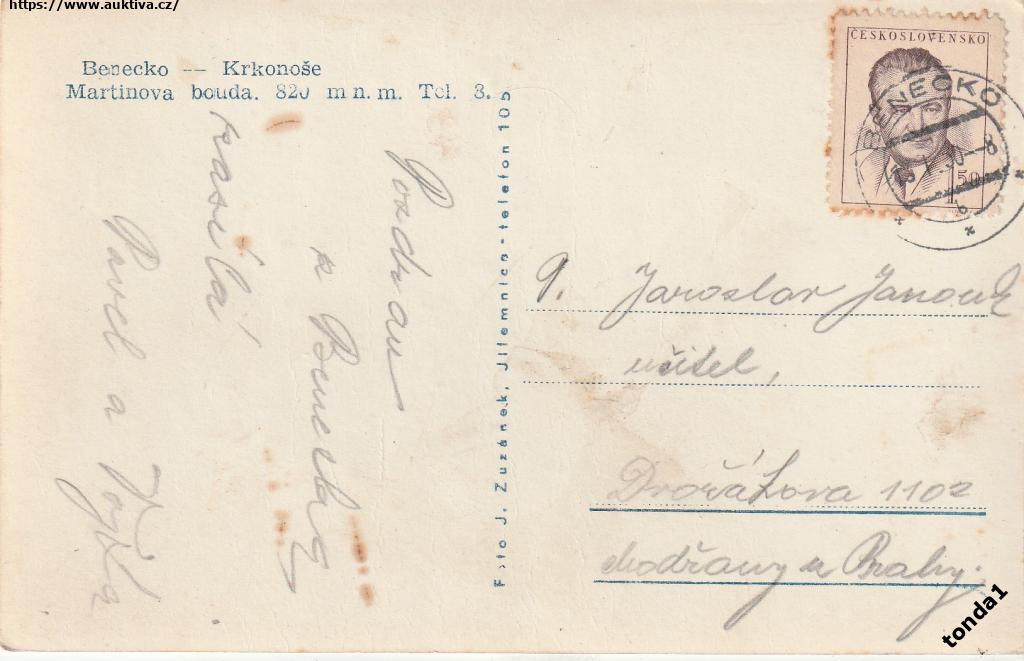 https://www.auktiva.cz/
Benecko — Krkonoše
Martinova bouda. 820 m n. m. Tel. 3.
Pozdrav
z Benecka
zasílá
Pavel a
Foto J. Zuzánek, Jilemnice - telefon 105
ČESKOSLOVENSKO
1.50
BENECKO
b
P. Jaroslav Janouk
učitel,
Dvořákova 1102
Modřany u Prahy.
tonda1